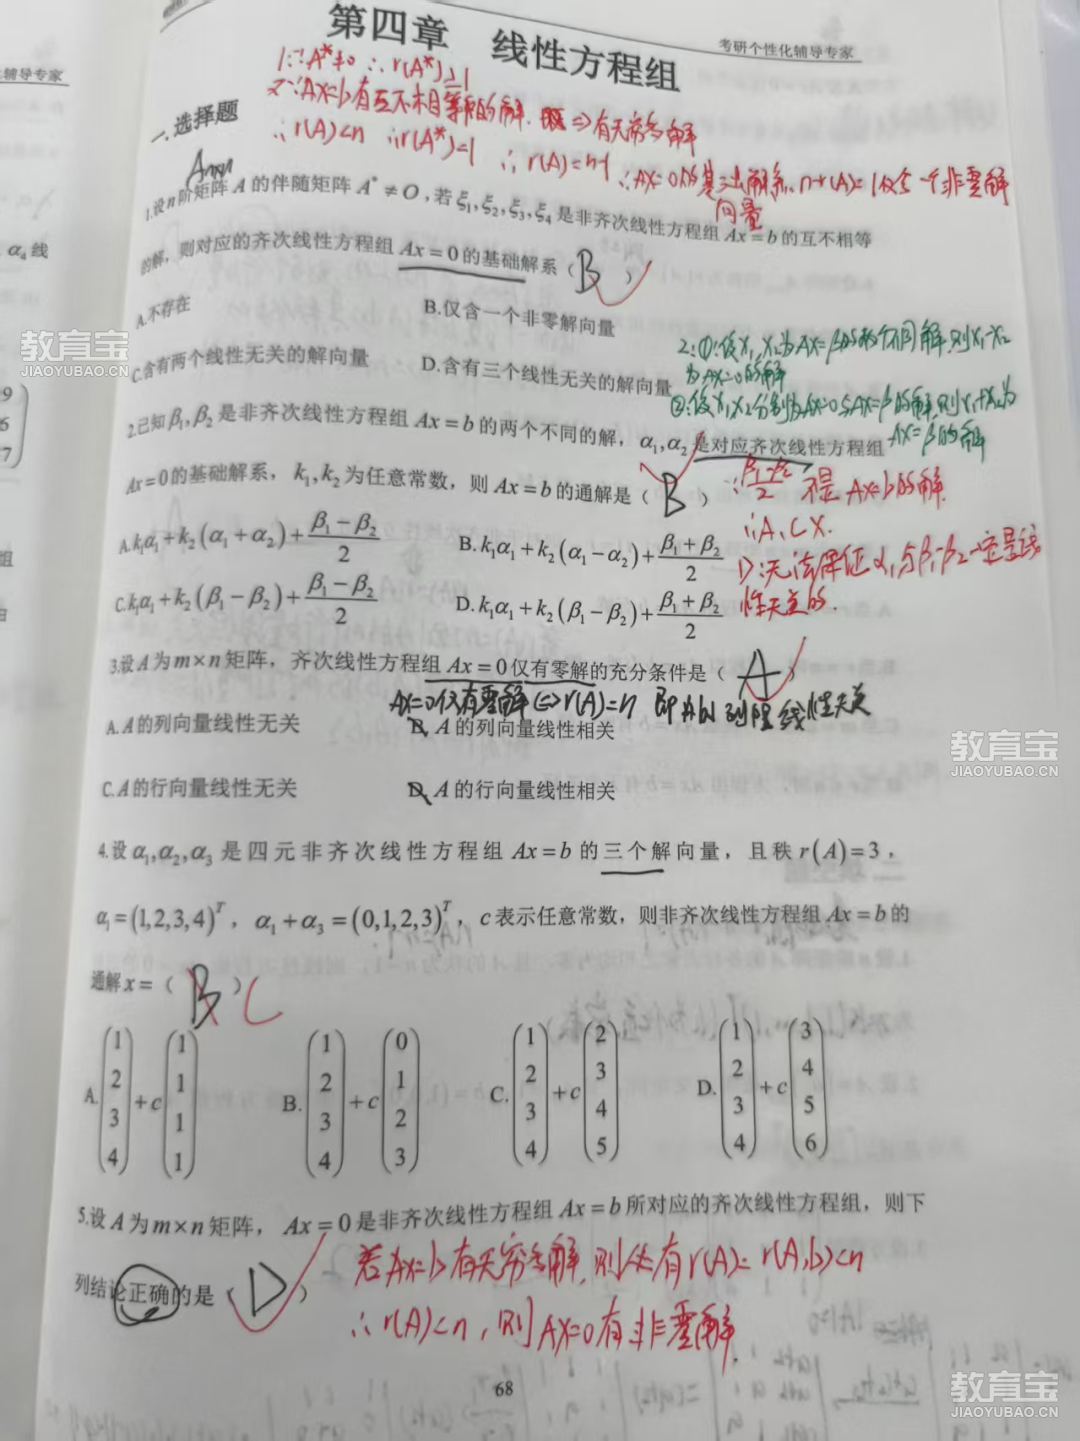 第四章 线性方程组
考研个性化辅导专家
辅导专家
1.∵A*≠0 ∴r(A*)≥1
又∵AX=b有互不相等的解, 既⇒有无穷多解
∴r(A)<n ∴r(A*)=1 ∴r(A)=n-1 ∴AX=0的基础解系 n-r(A)=1仅含一个非零解向量
一、选择题
Anxn
1.设n阶矩阵A的伴随矩阵A*≠O,若ξ₁,ξ₂,ξ₃,ξ₄是非齐次线性方程组Ax=b的互不相等
的解,则对应的齐次线性方程组Ax=0的基础解系(B)
A.不存在 B.仅含一个非零解向量
C.含有两个线性无关的解向量 D.含有三个线性无关的解向量
2:①:设X₁,X₂为AX=β的两个不同解,则X₁-X₂
为AX=0的解
②:设X₁X₂分别为AX=0与AX=β的解,则X₁+X₂为
AX=β的解
2.已知β₁,β₂是非齐次线性方程组Ax=b的两个不同的解,α₁,α₂是对应齐次线性方程组
Ax=0的基础解系,k₁,k₂为任意常数,则Ax=b的通解是(B)
∵(β₁-β₂)/2 不是AX=b的解
∴A、C X.
D:无法保证α₁与β₁-β₂一定是线
性无关的.
A.k₁α₁+k₂(α₁+α₂)+(β₁-β₂)/2 B.k₁α₁+k₂(α₁-α₂)+(β₁+β₂)/2
C.k₁α₁+k₂(β₁-β₂)+(β₁-β₂)/2 D.k₁α₁+k₂(β₁-β₂)+(β₁+β₂)/2
3.设A为m×n矩阵,齐次线性方程组Ax=0仅有零解的充分条件是(A)
AX=0仅有零解⇔r(A)=n 即A的列向量线性无关
A.A的列向量线性无关 B.A的列向量线性相关
C.A的行向量线性无关 D.A的行向量线性相关
4.设α₁,α₂,α₃是四元非齐次线性方程组Ax=b的三个解向量,且秩r(A)=3,
α₁=(1,2,3,4)ᵀ,α₁+α₃=(0,1,2,3)ᵀ,c表示任意常数,则非齐次线性方程组Ax=b的
通解x=(B)C
A.(1 2 3 4)+c(1 1 1 1) B.(1 2 3 4)+c(0 1 2 3) C.(1 2 3 4)+c(2 3 4 5) D.(1 2 3 4)+c(3 4 5 6)
5.设A为m×n矩阵,Ax=0是非齐次线性方程组Ax=b所对应的齐次线性方程组,则下
列结论正确的是(D)
若AX=b有无穷多解,则必有r(A)=r(A,b)<n
∴r(A)<n,则AX=0有非零解.
68
α₄线
9
6
7
组
教育宝
JIAOYUBAO.CN
教育宝
JIAOYUBAO.CN
教育宝
JIAOYUBAO.CN
教育宝
JIAOYUBAO.CN